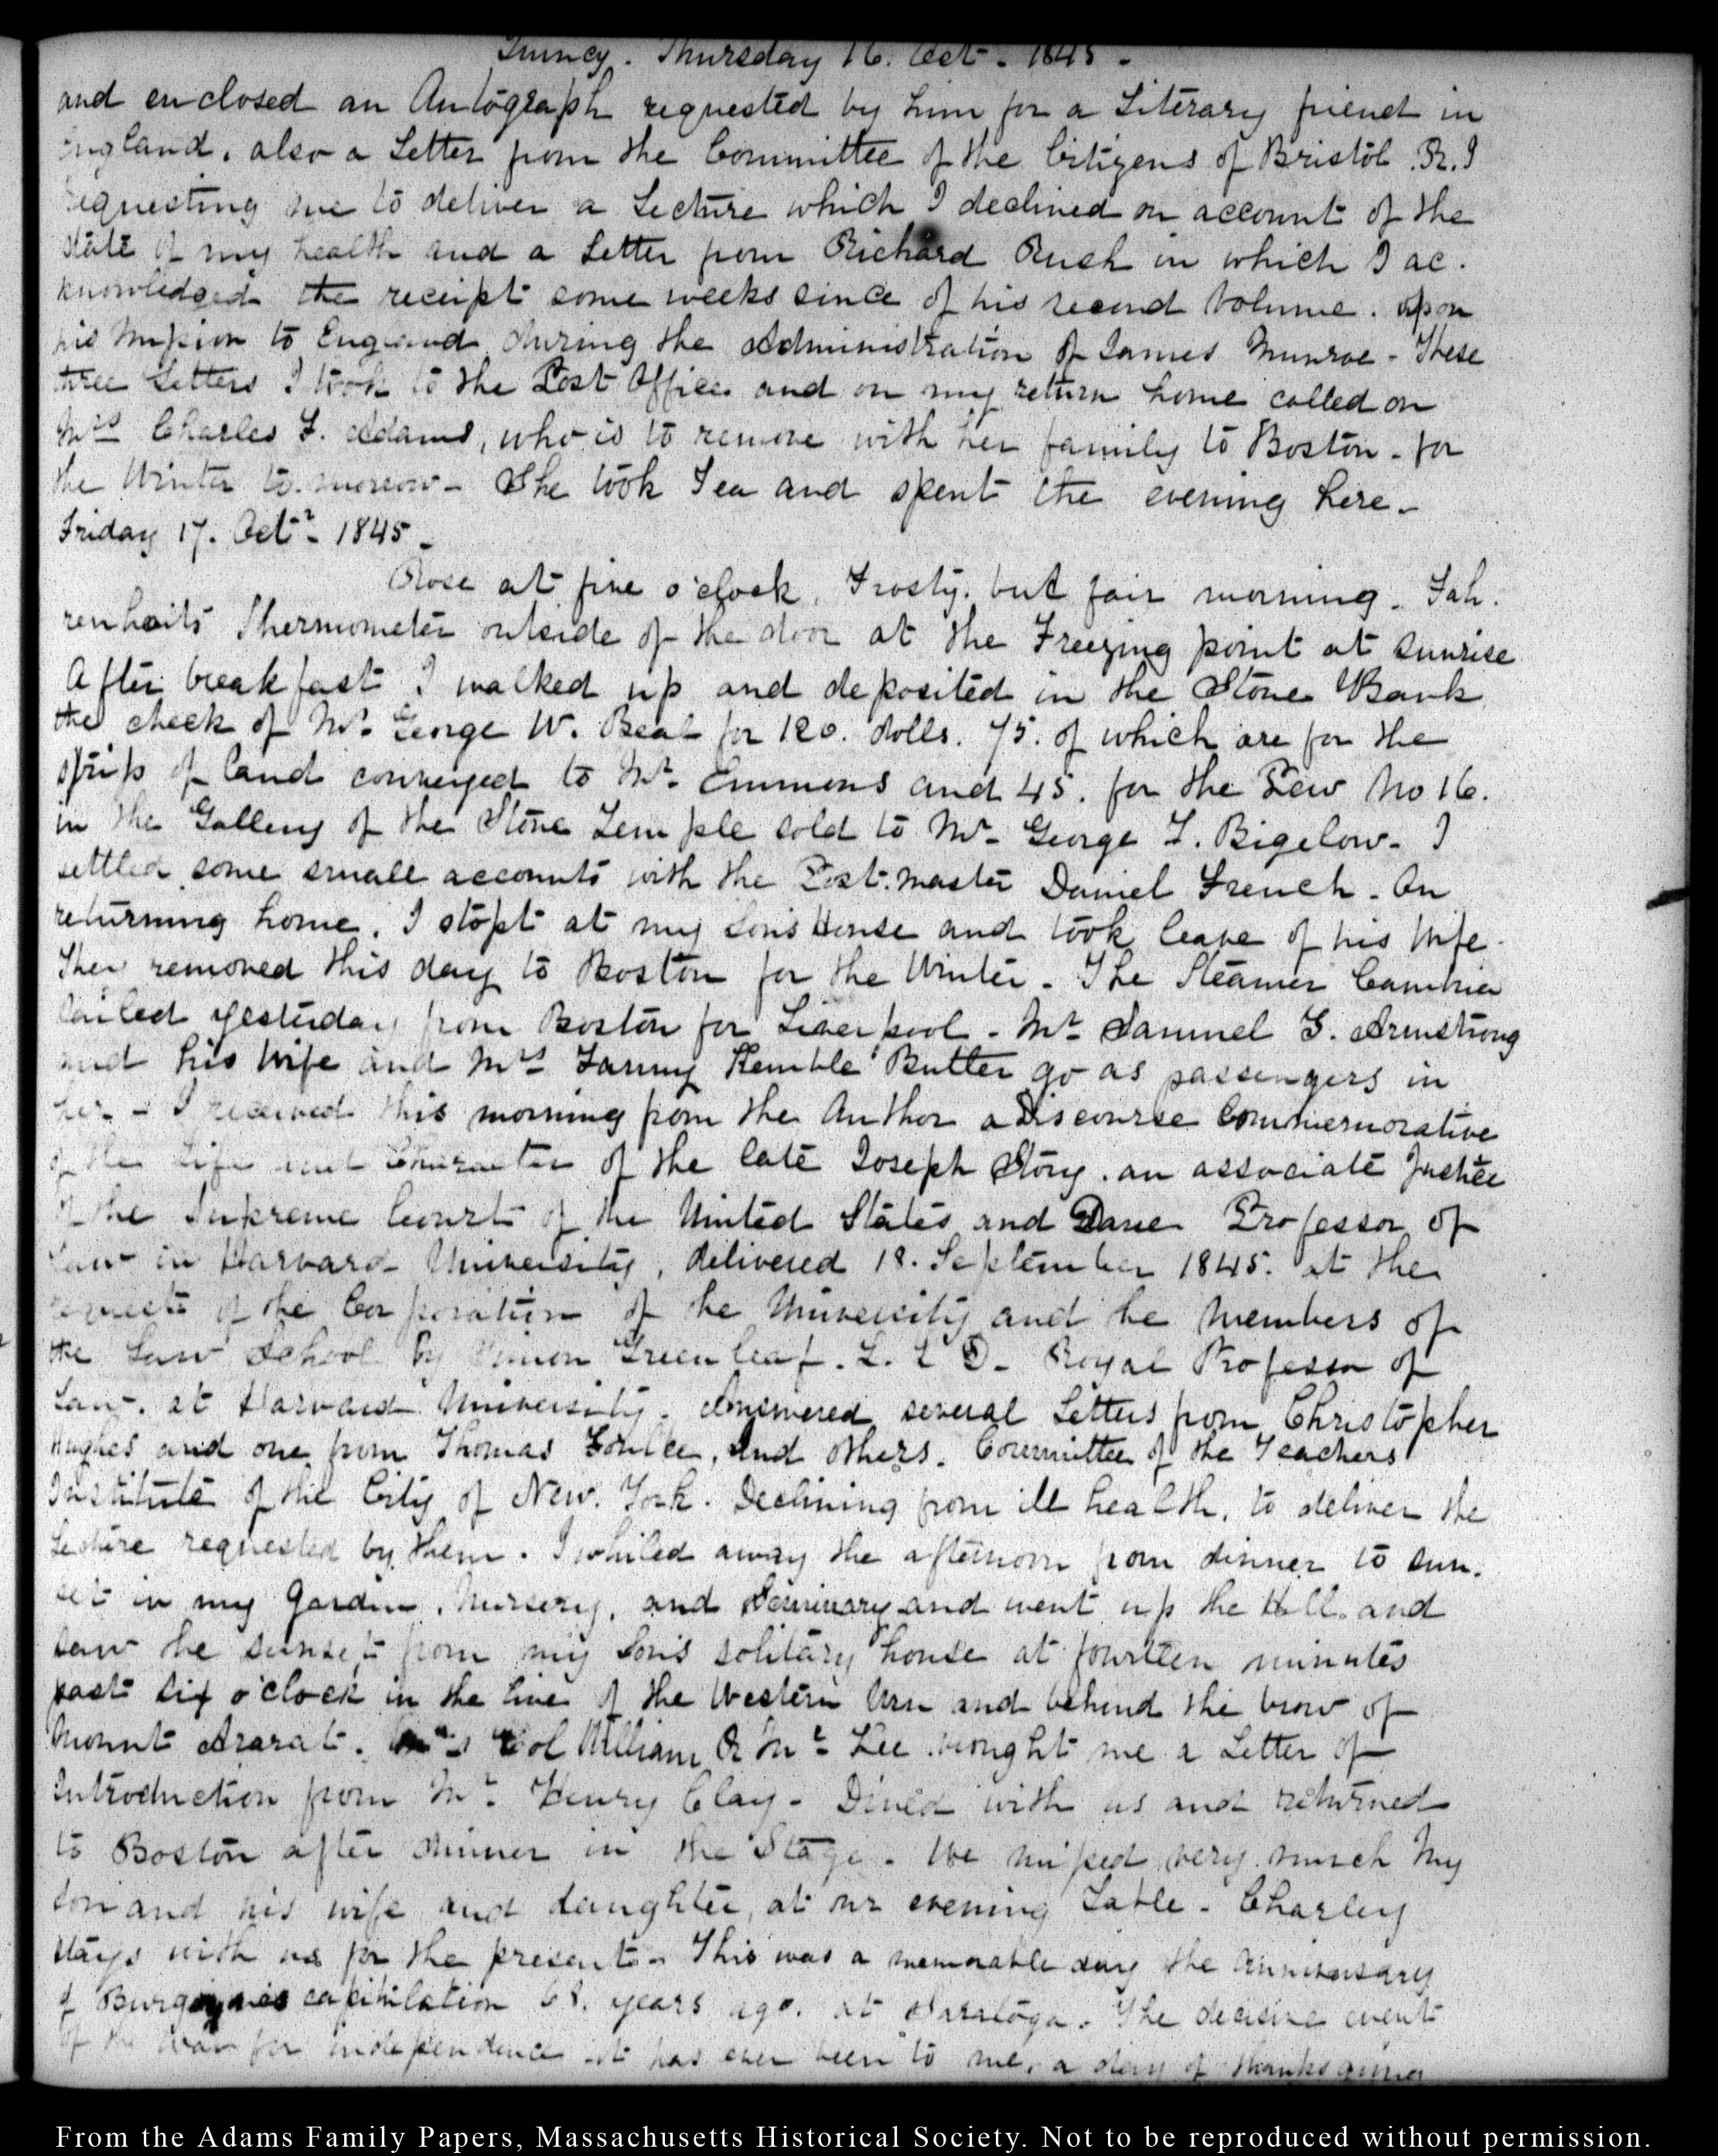 Quincy. Thursday 16. Oct. 1845.
and enclosed an Autograph requested by him for a Literary friend in
England, also a Letter from the Committee of the Citizens of Bristol R. I
requesting me to deliver a Lecture which I declined on account of the
state of my health and a Letter from Richard Rush in which I ac-
knowledged the receipt some weeks since of his second Volume. upon
his Mission to England during the Administration of James Munroe - These
three Letters I took to the Post Office and on my return home called on
Mrs Charles F. Adams, who is to remove with her family to Boston - for
the Winter to-morrow - She took Tea and spent the evening here -
Friday 17. Octr - 1845 -
Rose at five o'clock. Frosty. but fair morning. Fah-
renheits Thermometer outside of the door at the Freezing point at sunrise
After breakfast I walked up and deposited in the Stone Bank
the check of Mr. George W. Beal for 120. dolls. 75. of which are for the
strip of land conveyed to Mr. Emmons and 45. for the Pew No 16.
in the Gallery of the Stone Temple sold to Mr. George T. Bigelow - I
settled some small accounts with the Post-master Daniel French - On
returning home, I stopt at my Sons House and took leave of his Wife -
They removed this day to Boston for the Winter - The Steamer Cambria
sailed yesterday from Boston for Liverpool - Mr Samuel T. Armstrong
and his Wife and Mrs Fanny Kemble Butler go as passengers in
her - I received this morning from the Author a Discourse Commemorative
of the Life and Character of the late Joseph Story. an associate Justice
of the Supreme Court of the United States and Dane Professor of
Law in Harvard University, delivered 18. September 1845. at the
request of the Corporation of the University and the Members of
the Law School by Simon Greenleaf. L. L D - Royal Professor of
Law. at Harvard University. Answered several Letters from Christopher
Hughes and one from Thomas and others. Committee of the Teachers
Institute of the City of New. York. Declining from ill health, to deliver the
Lecture requested by them. I whiled away the afternoon from dinner to sun-
set in my Garden, Nursery, and Seminary and went up the Hill and
saw the sunset from my Sons solitary house at fourteen minutes
past six o'clock in the line of the Western Urn and behind the brow of
Mount Ararat. Col William Mr Lee brought me a Letter of
Introduction from Mr. Henry Clay - Dined with us and returned
to Boston after dinner in the Stage - We missed very much My
Son and his wife and daughter, at our evening Table - Charley
stays with us for the present - This was a memorable day the anniversary
of Burgoynes capitulation 68. years ago. at Saratoga. The decisive event
of the War for independence it has ever been to me, a day of thanksgiving
From the Adams Family Papers, Massachusetts Historical Society. Not to be reproduced without permission.